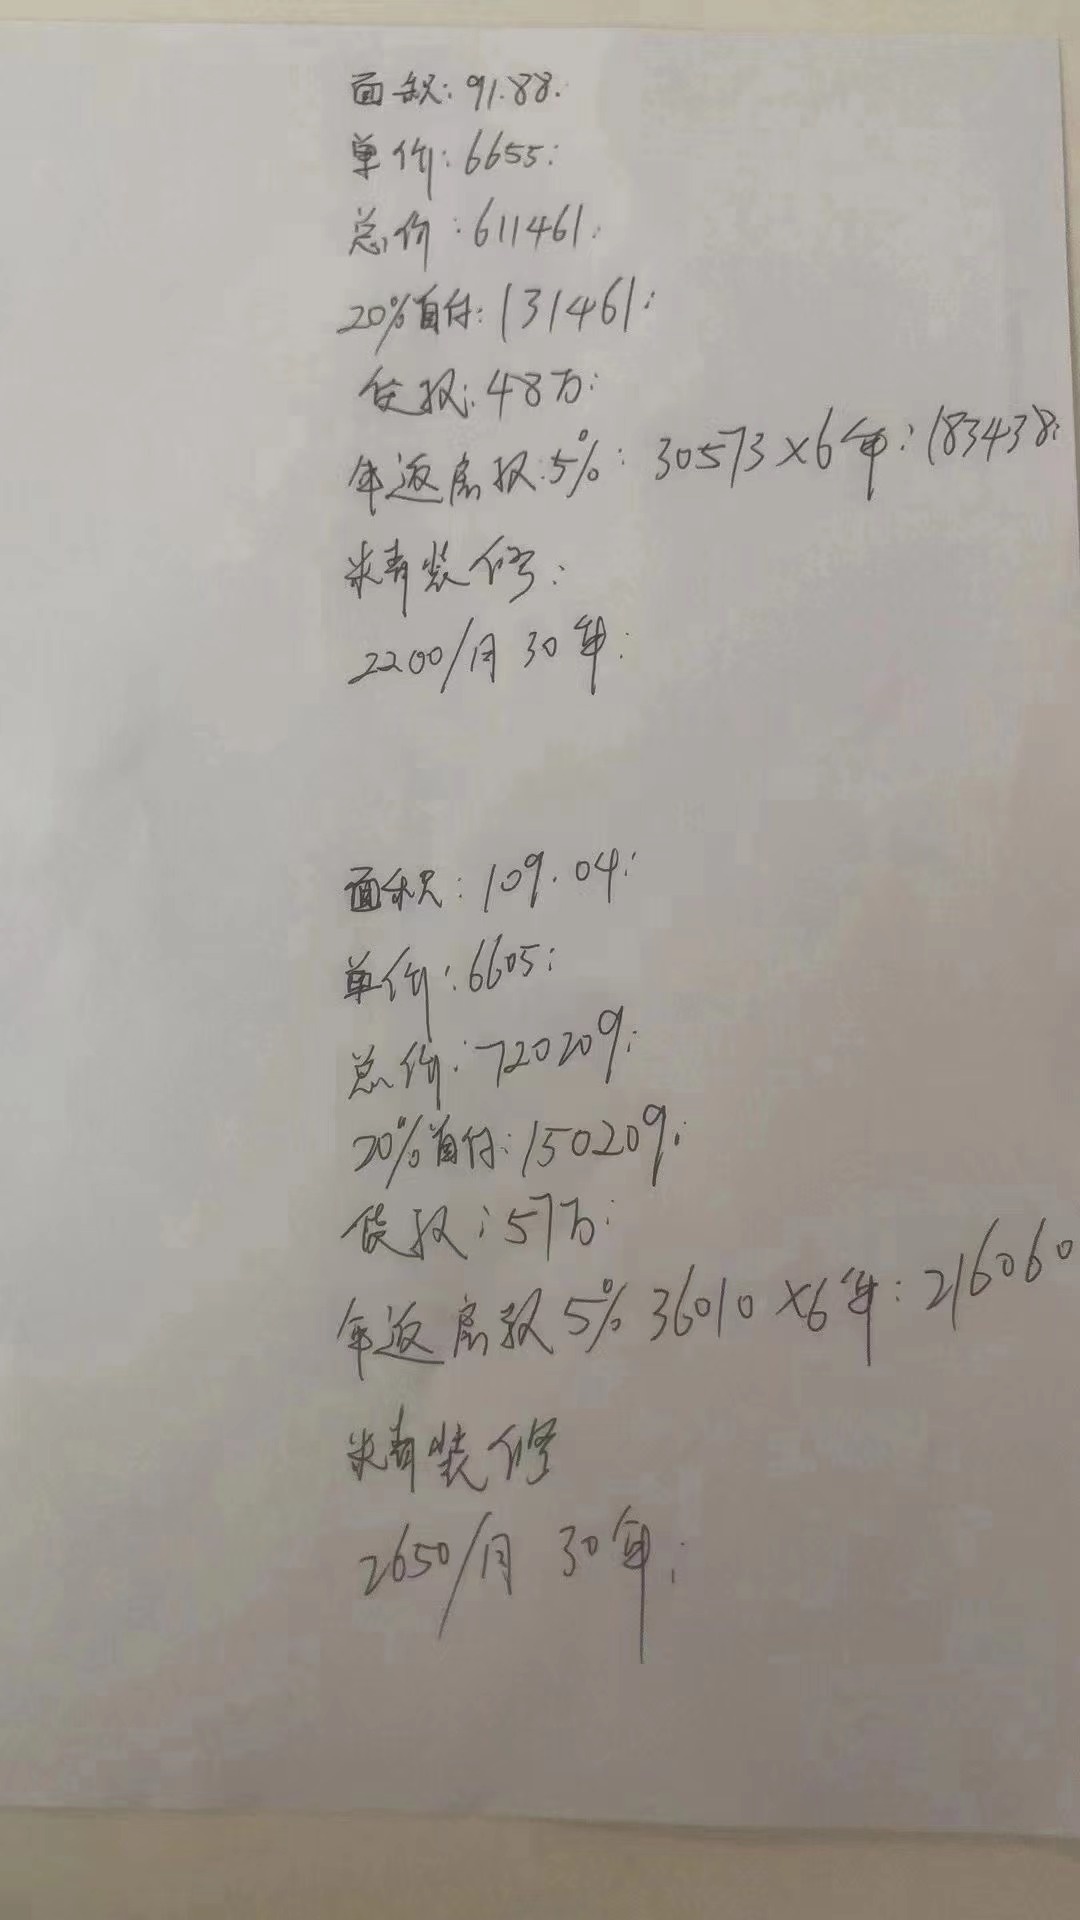 面积:91.88.
单价:6655:
总价:611461.
20%首付:131461:
贷款:48万:
年返房款:5%:30573×6年:183438:
精装修:
2200/月 30年:
面积:109.04:
单价:6605:
总价:720209:
20%首付:150209:
贷款:57万:
年返房款5% 36010×6年:216060
精装修
2650/月 30年: